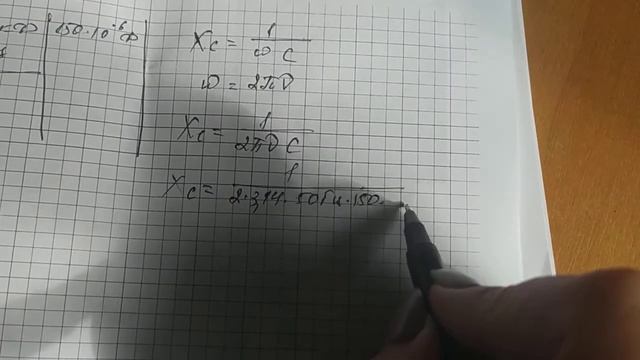 150·10⁻⁶ Ф
Xc = 1 / ω C
ω = 2πν
Xc = 1 / 2πν C
Xc = 1 / 2·3,14·50Гц·150·